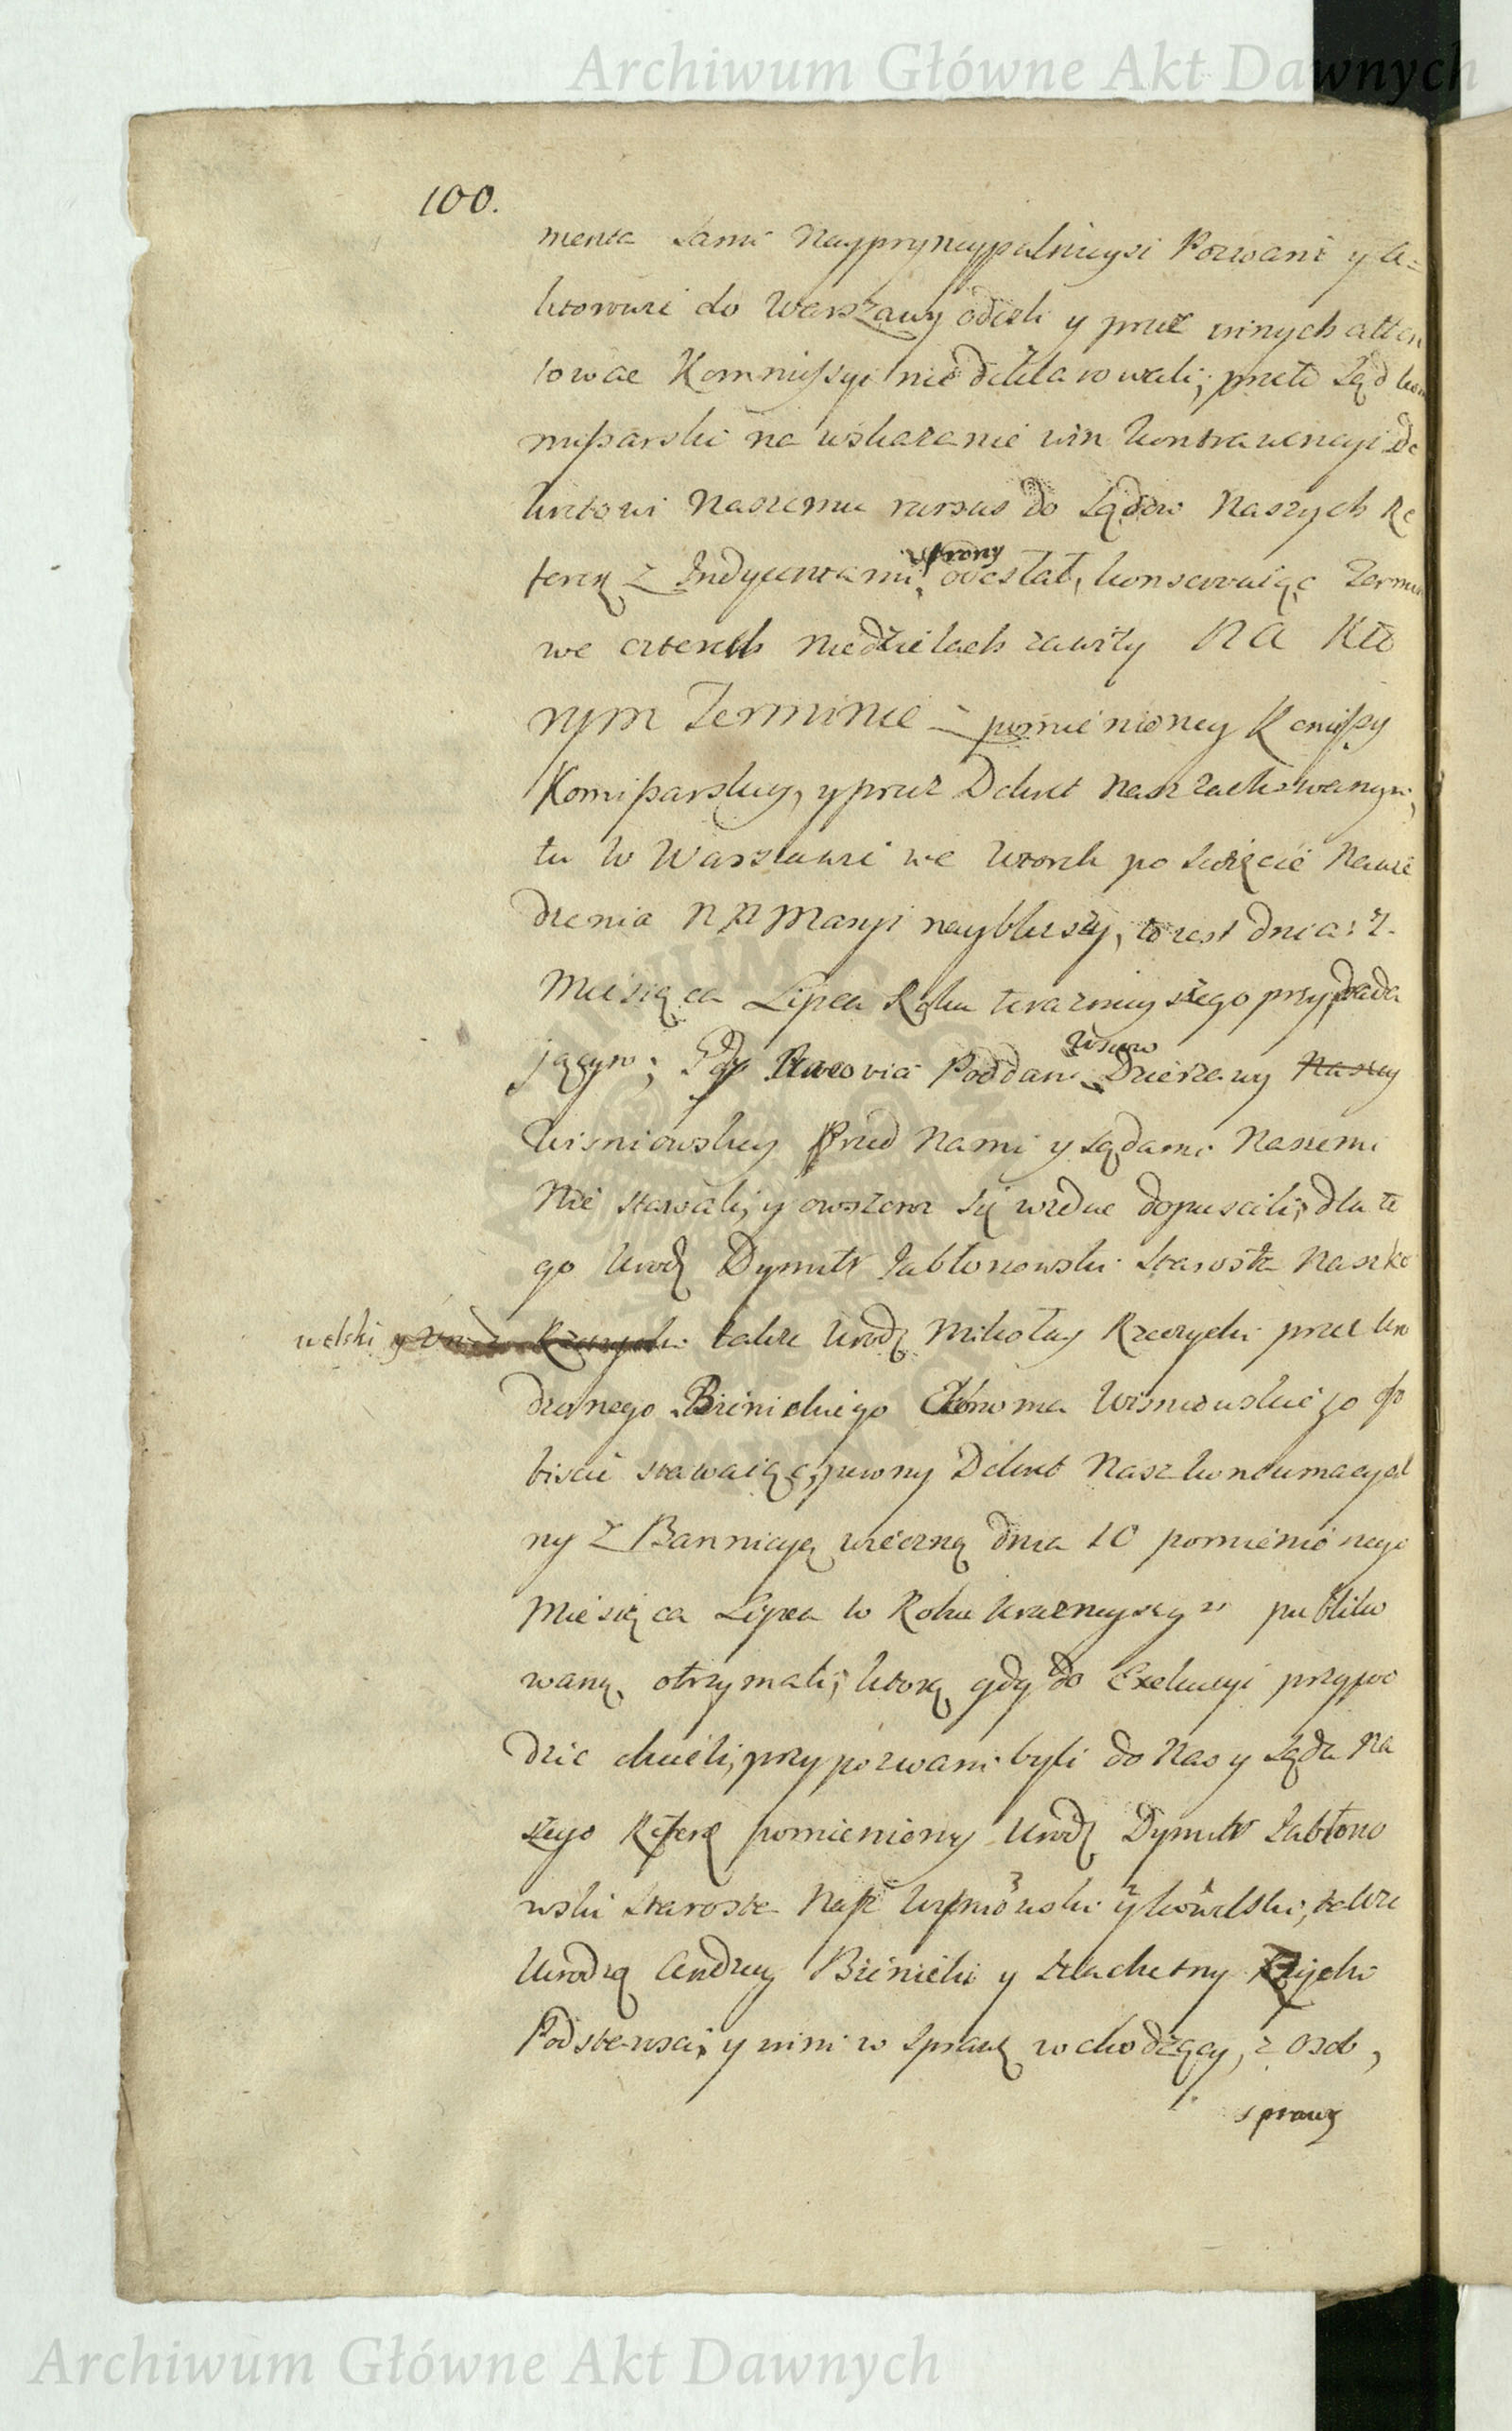 Archiwum Główne Akt Dawnych
100.
menta Sami Naypryncypalnieysi Pozwani y A=
ktorowie do Warszawy odeszli y przez innych atten
towae Kommissyi nie deklarowali; przeto Sąd kom
missarski na wskazanie win kontrawencyi De
kretowi Naszemu rursus do Sądow Naszych Re
feren z Indyentami strony odesłał, konserwuiąc Termin
we czterech Niedzielach zawity NA Kto
rym Terminie z pomienioney Remissy
Komissarskiey, y przez Dekret Nasz zachowanym,
tu w Warszawie we Wtorek po Swięcie Nawie
dzenia N P Maryi nayblizszy, to iest dnia: 7.
Miesiąca Lipca Roku teraznieyszego przypada
jącym; Gdy Powodowie Poddani Wsiow Dzierzawy Naszey
Wisniowskiey Przed Nami y Sądami Naszemi
Nie stawali, y owszem się wzdac dopuscili, dla te
go Urodz Dymitr Jabłonowski Starosta Nasz Ko
welski y Urodz Rzeczycki także Urodz Mikołay Rzeczycki przez Uro
dzonego Biernickiego Ekonoma Wisniowskiego Oso
biscie stawaiącc, pewny Dekret Nasz kontumacyal
ny z Bannicyą wieczną dnia 10 pomienionego
Miesiąca Lipca w Roku teraznieyszym publiko
waną, otrzymali; ktorą gdy do Exekucyi przywo
dzic chcieli, przypozwani byli do Nas y Sądu Na
szego Referen pomieniony Urodz Dymitr Jabłono
wski Starosta Nasz Wisniowski y Kowelski; także
Urodzą Andrzey Biernicki y Szlachetny Rzycki
Podstarosci, y inni w sprawę wchodzący, z Osob,
sprawę
Archiwum Główne Akt Dawnych